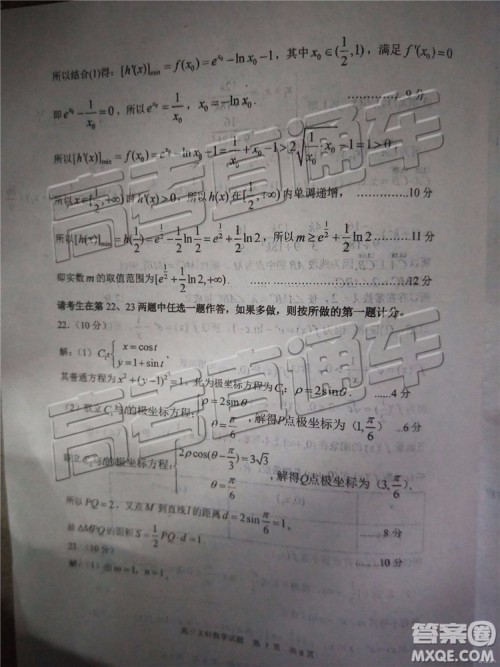 所以结合(1)得：[h'(x)]min = f(x₀) = e^{x₀} − ln x₀ − 1，其中 x₀∈(1/2,1)，满足 f'(x₀)=0
即 e^{x₀} − 1/x₀ = 0，所以 e^{x₀} = 1/x₀，x₀ = −ln x₀. 9 分
所以[h'(x)]min = f(x₀) = e^{x₀} − ln x₀ − 1 = 1/x₀ + x₀ − 1 > 2√(1/x₀·x₀) − 1 = 1 > 0,
所以 x∈[1/2,+∞) 时 h'(x)>0，所以 h(x) 在 [1/2,+∞) 内单调递增，……10 分
所以[h(x)]min = h(1/2) = e^{1/2} − 1/2 ln 1/2 = e^{1/2} + 1/2 ln2，所以 m ≥ e^{1/2} + 1/2 ln2 …… 11 分
即实数 m 的取值范围为 [e^{1/2} + 1/2 ln2, +∞). 12 分
请考生在第 22、23 两题中任选一题作答，如果多做，则按所做的第一题计分。
22.（10 分）
解：（1） { x = cos t y = 1 + sin t ,
其普通方程为 x² + (y−1)² = 1，化为极坐标方程为 C₁：ρ = 2sinθ .....4 分
（2）联立 C₁与l的极坐标方程： { ρ = 2sinθ θ = π/6 ，解得P点极坐标为 (1, π/6) ...6 分
的极坐标方程： { 2ρcos(θ − π/3) = 3√3 θ = π/6 ，解得Q点极坐标为 (3, π/6).
所以 PQ = 2，又点 M 到直线 l 的距离 d = 2sin π/6 = 1,
故 ΔMPQ 的面积 S = 1/2 PQ·d = 1 8 分
10 分
23.（10 分）
解：（1）由 m = 1，n = 1，
高三文科数学试题 第 7 页 共 8 页
高考直通车
高考直通车
答案圈
MXQE.COM